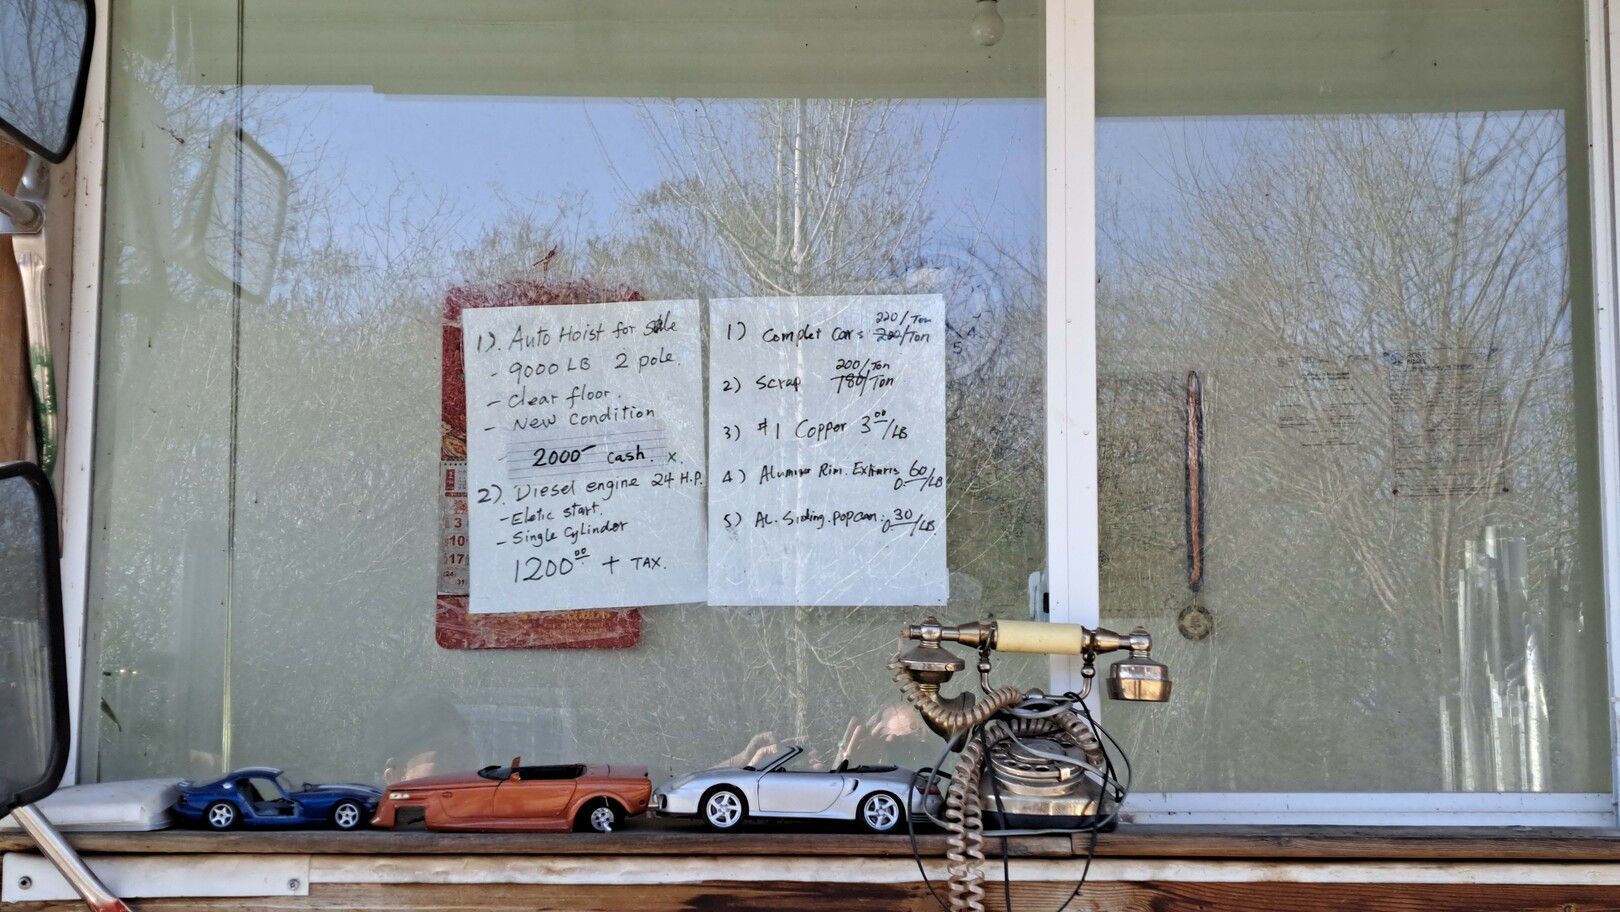 1). Auto Hoist for Sale
- 9000 LB 2 pole.
- Clear floor.
- New Condition
2000 cash. x.
2). Diesel engine 24 H.P.
- Eletic start.
- Single Cylinder
1200.00 + TAX.
220/Ton
1) Complet Cars 200/Ton
200/Ton
2) Scrap 180/Ton
3) #1 Copper 3.00/LB
4) Alumino Rim. 0.60/LB
5) AL. Siding. pop can: 0.30/LB
3
10
17